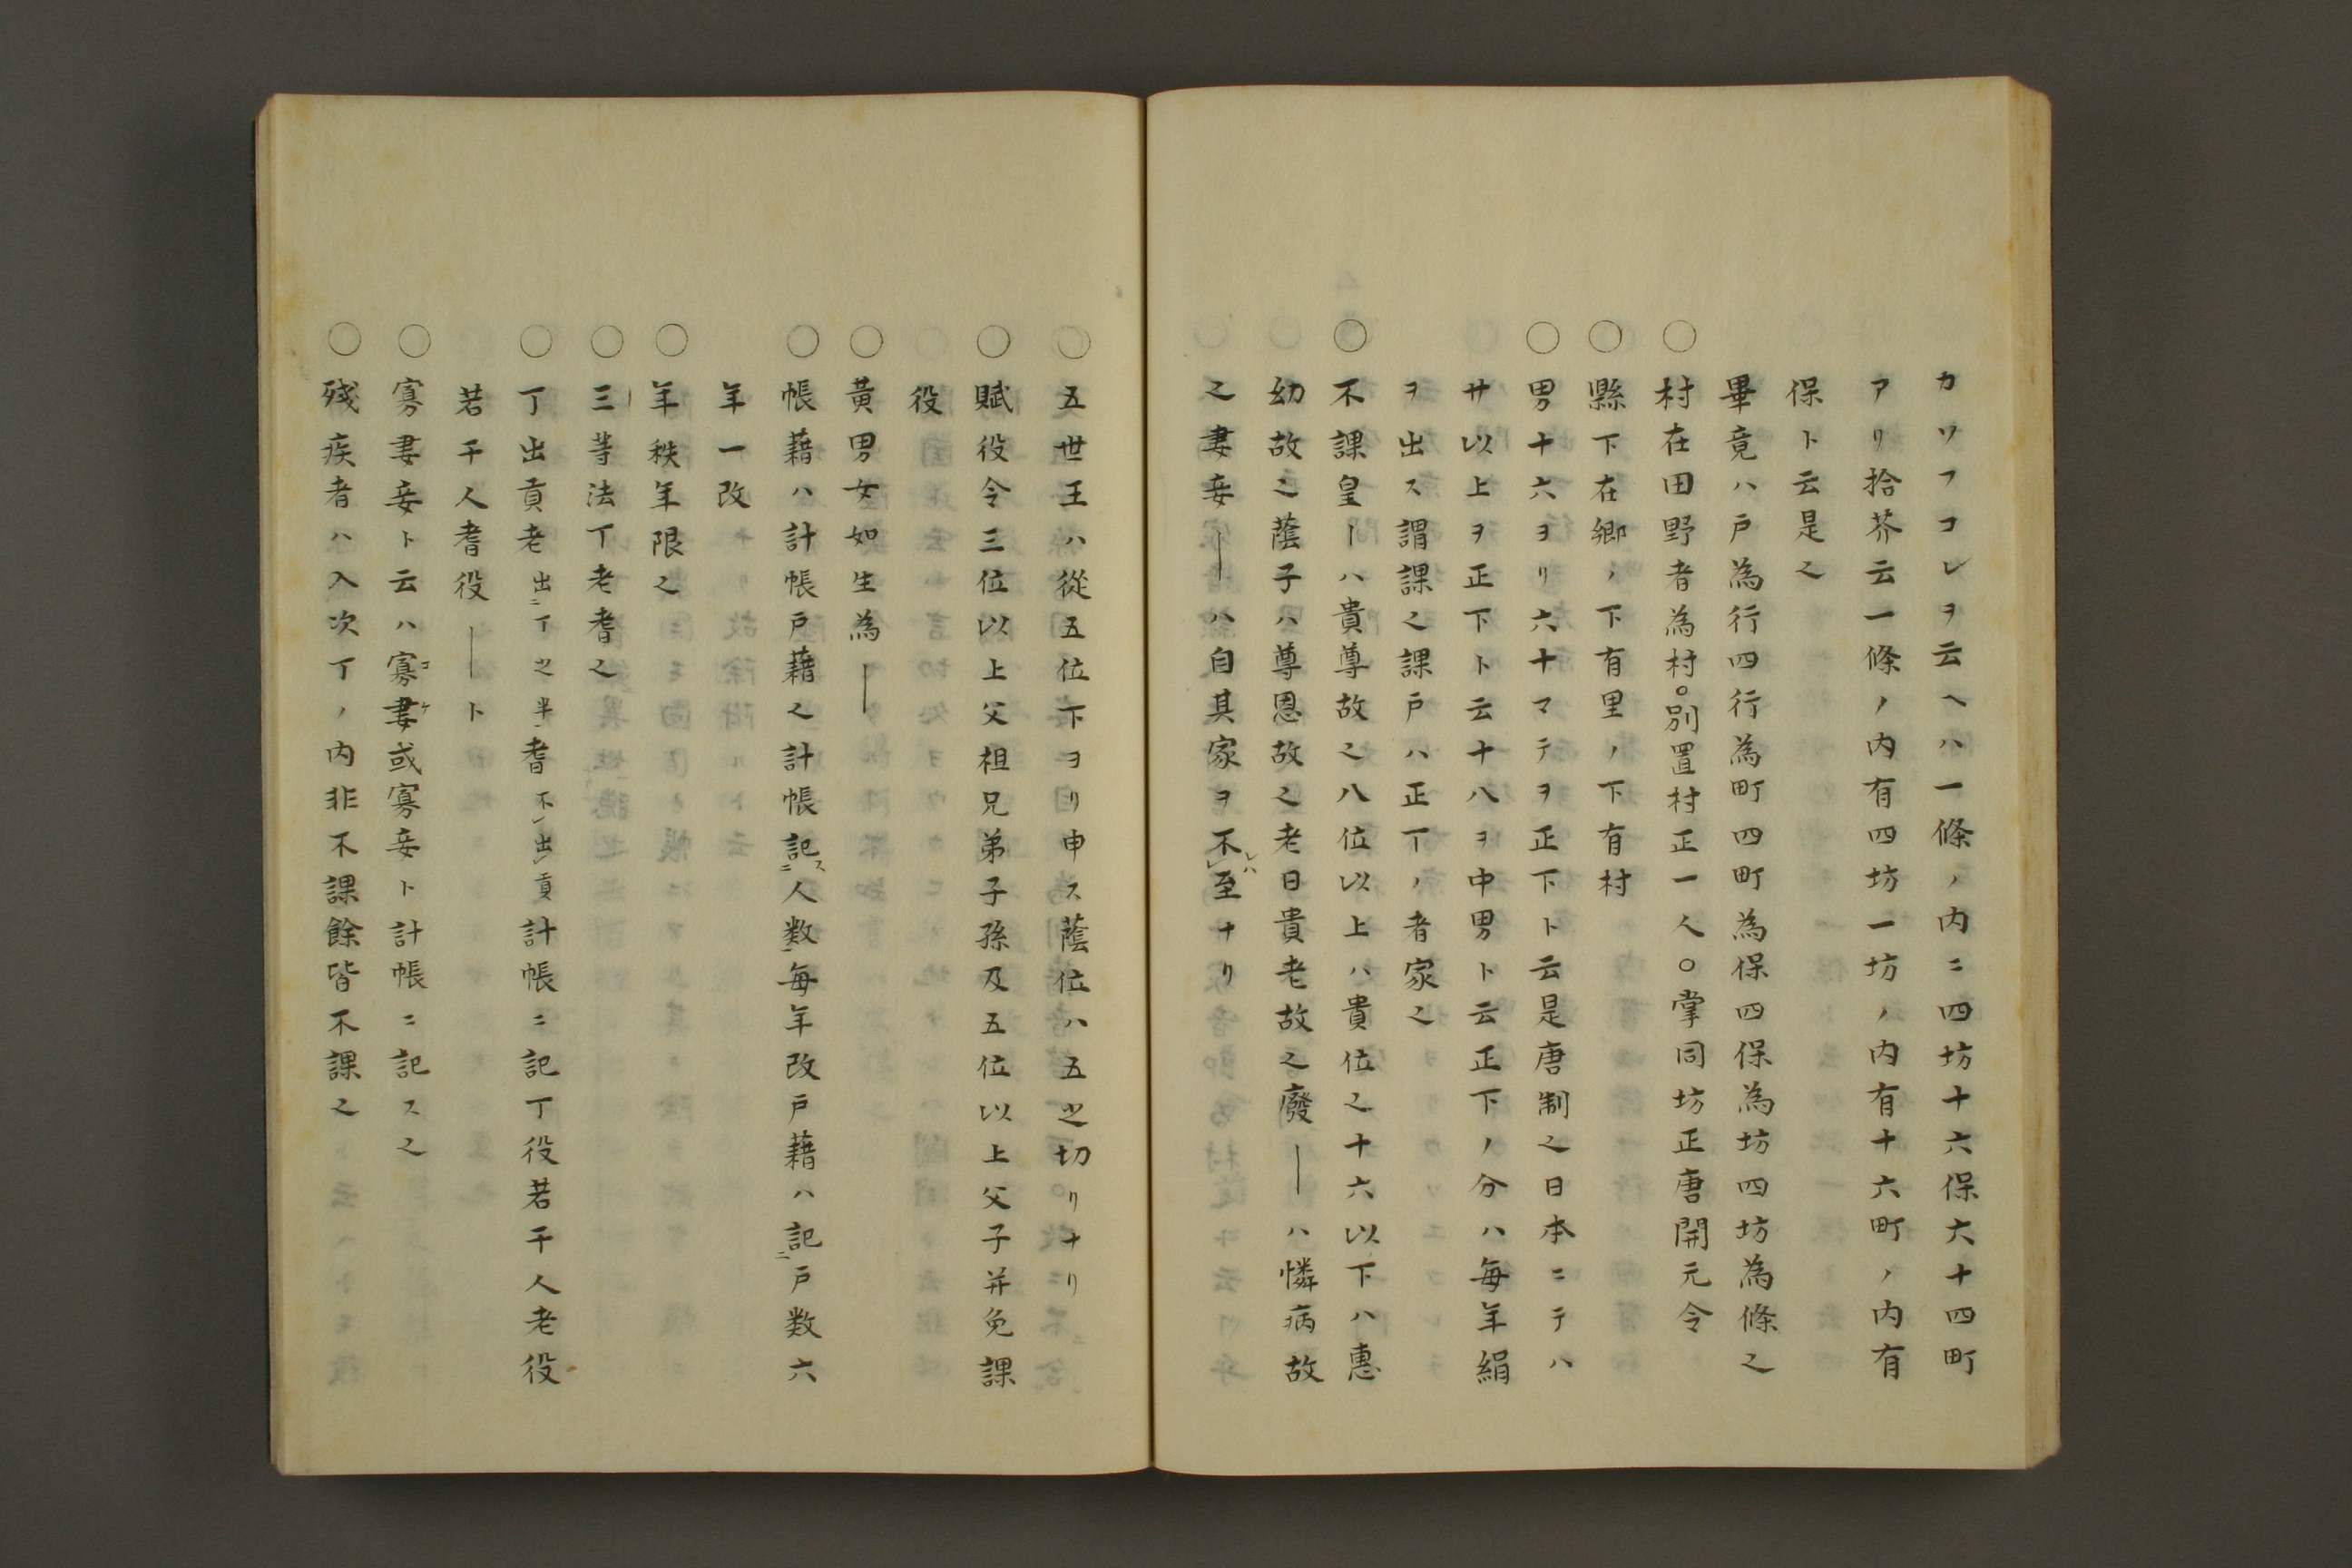 カソフコレヲ云ヘハ一條ノ内ニ四坊十六保六十四町
アリ拾芥云一條ノ内有四坊一坊ノ内有十六町ノ内有
保ト云是之
畢竟ハ戸為行四行為町四町為保四保為坊四坊為條之
○村在田野者為村○別置村正一人○掌同坊正唐開元令
○縣下在郷ノ下有里ノ下有村
○男十六ヨリ六十マテヲ正下ト云是唐制之日本ニテハ
廿以上ヲ正下ト云十八ヲ中男ト云正下ノ分ハ毎年絹
ヲ出ス謂課之課戸ハ正丁ノ者家之
○不課皇｜ハ貴尊故之八位以上ハ貴位之十六以下ハ惠
幼故之蔭子ハ尊恩故之老日貴老故之廢｜ハ憐病故
之妻妾｜ハ自其家ヲ不レ至レハナリ
○五世王ハ從五位下ヨリ申ス蔭位ハ五世切リナリ
○賦役令三位以上父祖兄弟子孫及五位以上父子并免課
役
○黄男女如生為｜
○帳藉ハ計帳戸藉之計帳記ニス人数ニ毎年改戸藉ハ記ニ戸数六
年一改
○年秩年限之
○三等法丁老耆之
○丁出貢老出ニ丁之半耆不レ出レ貢計帳ニ記丁役若干人老役
若干人耆役｜ト
○寡妻妾ト云ハ寡コ妻ケ或寡妾ト計帳ニ記ス之
○殘疾者ハ入次丁ノ内非不課餘皆不課之